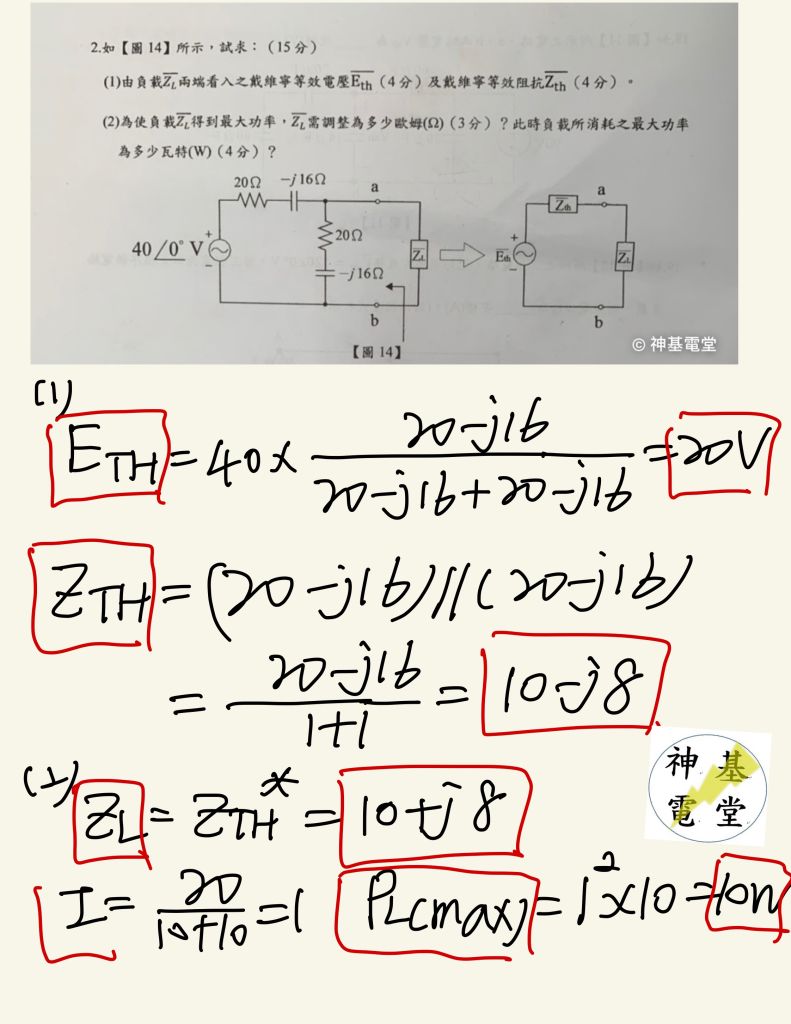 2.如【圖 14】所示，試求：（15 分）
(1)由負載Z_L兩端看入之戴維寧等效電壓E_th（4 分）及戴維寧等效阻抗Z_th（4 分）。
(2)為使負載Z_L得到最大功率，Z_L需調整為多少歐姆(Ω)（3 分）？此時負載所消耗之最大功率
為多少瓦特(W)（4 分）？
20Ω -j16Ω a
a
Zth
20Ω
40/0° V + -
ZL
+ Eth -
ZL
-j16Ω
b
b
【圖 14】
© 神基電堂
(1)
ETH = 40 × (20-j16)/(20-j16+20-j16) = 20V
ZTH = (20-j16)//(20-j16)
= (20-j16)/(1+1) = 10-j8
神基
電堂
(2) ZL = ZTH* = 10+j8
I = 20/(10+10) = 1 PL(max) = 1²×10 = 10W